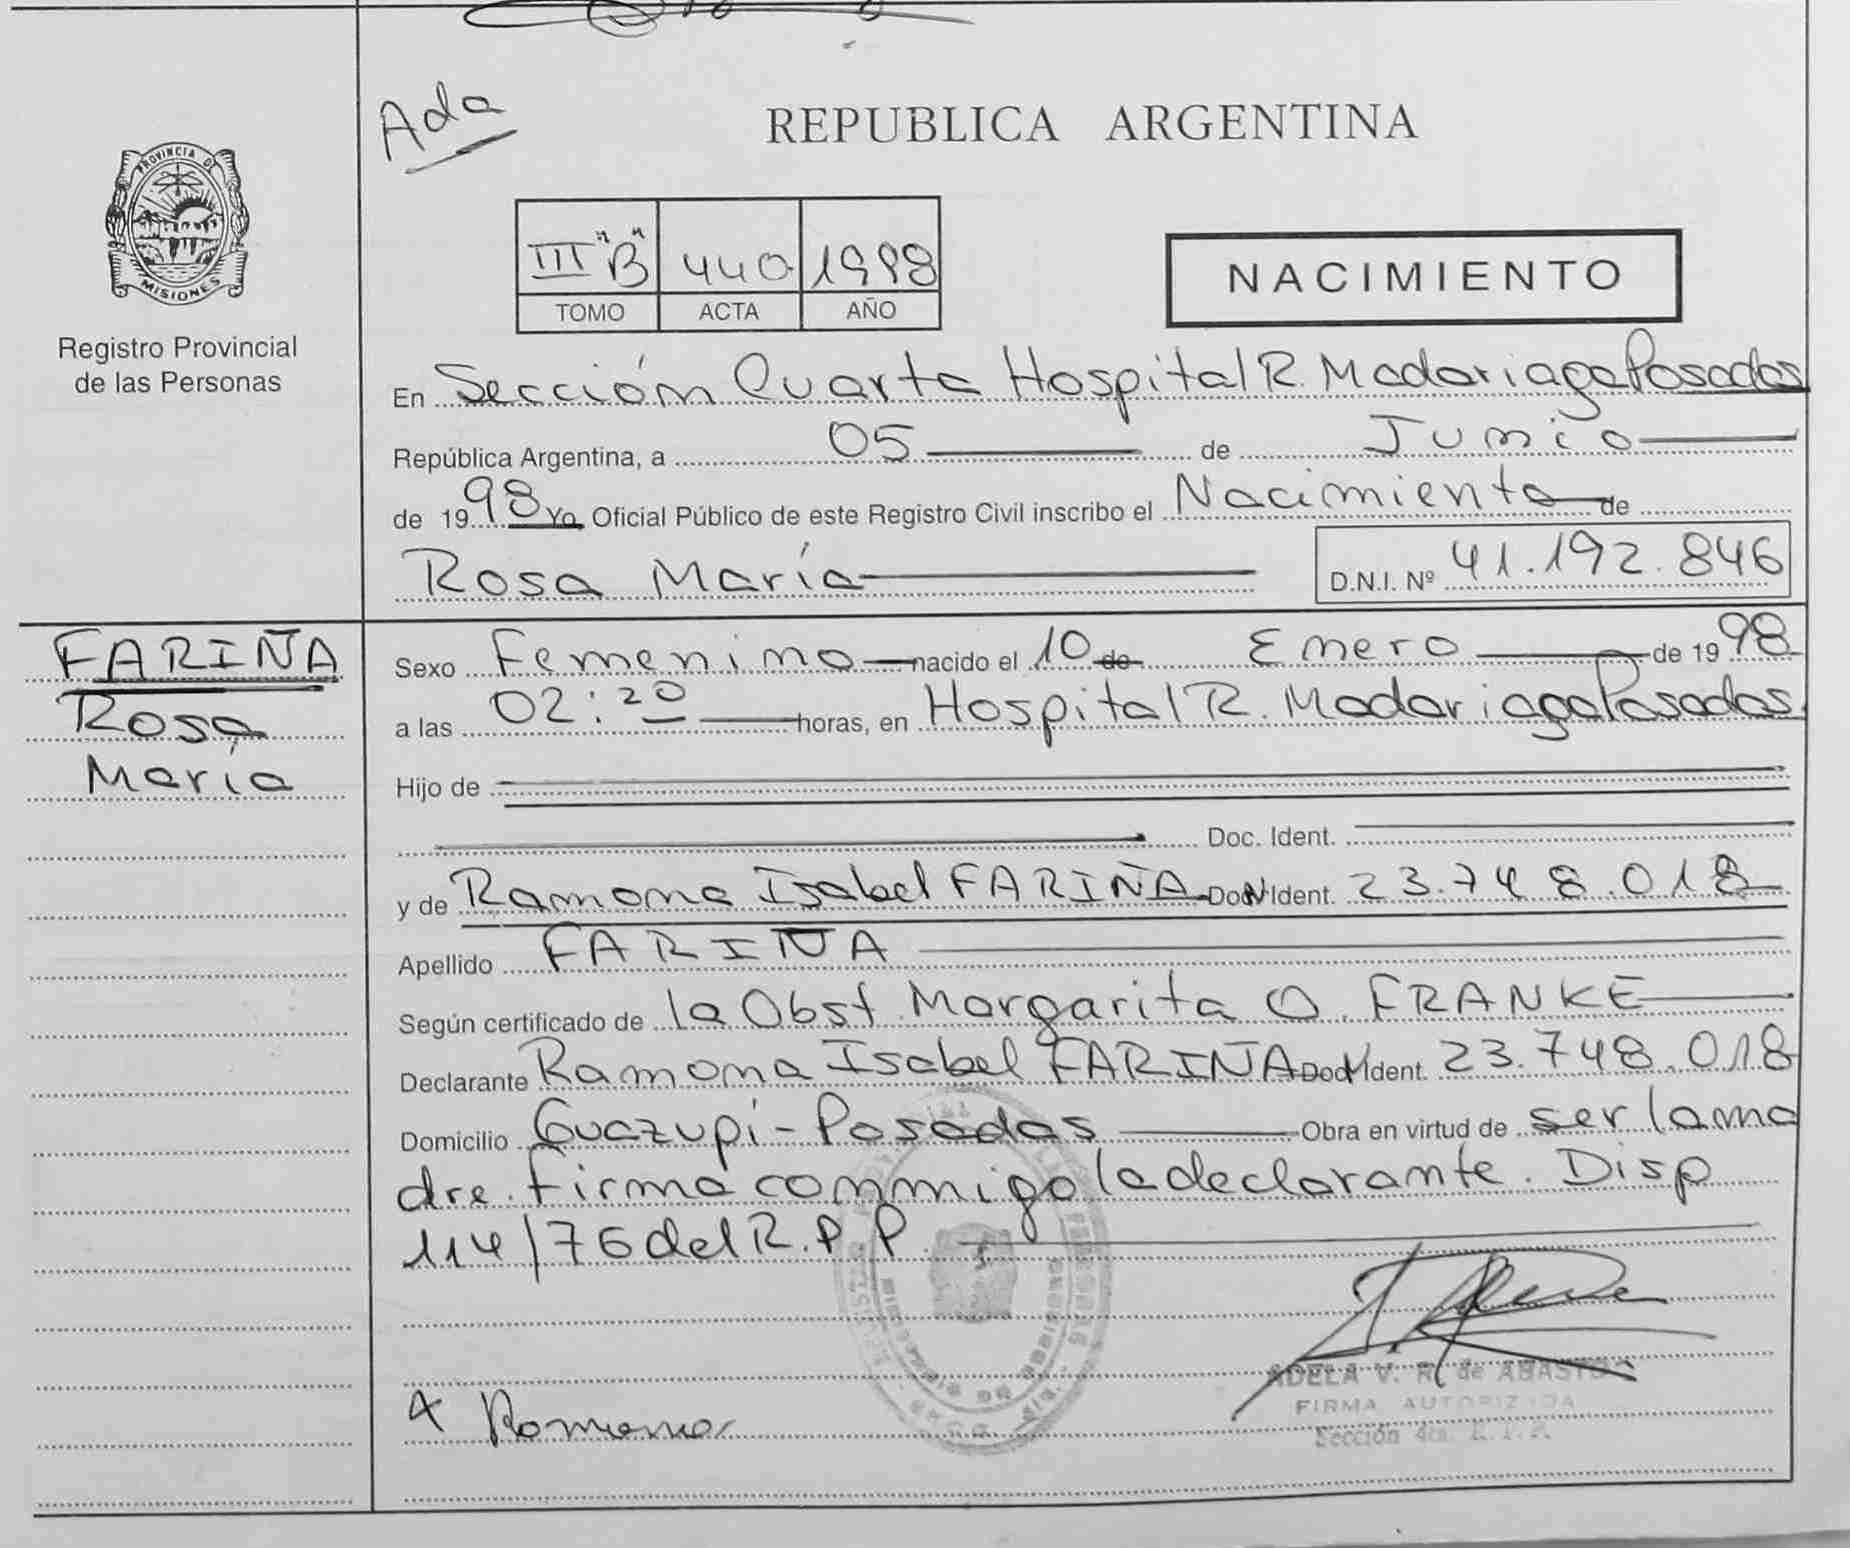 Ada
REPUBLICA ARGENTINA
PROVINCIA DE
MISIONES
Registro Provincial
de las Personas
III "B" 440 1998
TOMO ACTA AÑO
NACIMIENTO
En Sección Cuarta Hospital R. Madariaga Posadas
República Argentina, a 05 de Junio
de 1998 Yo Oficial Público de este Registro Civil inscribo el Nacimiento de
Rosa María D.N.I. Nº 41.192.846
FARIÑA
Rosa
María
Sexo Femenino nacido el 10 de Enero de 1998
a las 02:20 horas, en Hospital R. Madariaga Posadas
Hijo de
Doc. Ident.
y de Ramona Isabel FARIÑA Doc. Ident. 23.748.018
Apellido FARIÑA
Según certificado de la Obst. Margarita O. FRANKE
Declarante Ramona Isabel FARIÑA Doc. Ident. 23.748.018
Domicilio Guazupí - Posadas Obra en virtud de ser la ma
dre. Firma conmigo la declarante. Disp
114/76 del R.P.P.
ADELA V. R. de ABASTO
FIRMA AUTORIZADA
Sección 4ta. R. P. P.